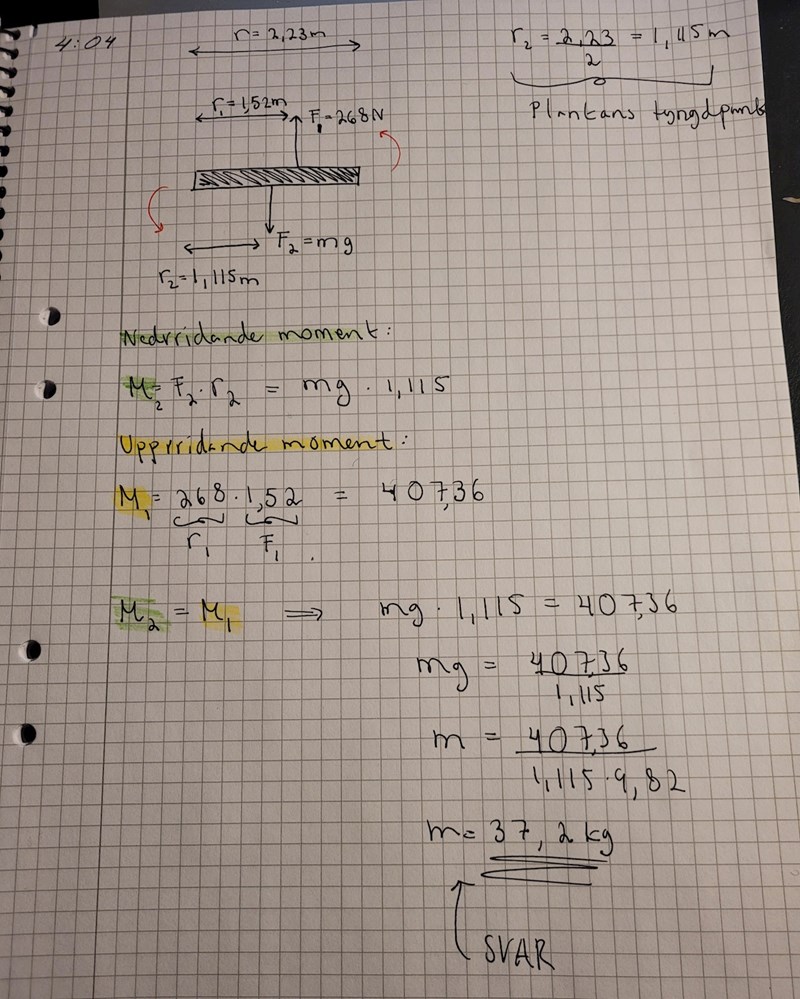 4:04
r = 2,23m
r₂ = 2,23/2 = 1,115m
Plankans tyngdpunkt
r₁ = 1,52m
F₁ = 268N
F₂ = mg
r₂ = 1,115m
Nedvridande moment:
M₂ = F₂ · r₂ = mg · 1,115
Uppvridande moment:
M₁ = 268 · 1,52 = 407,36
r₁ F₁
M₂ = M₁ ⟹ mg · 1,115 = 407,36
mg = 407,36/1,115
m = 407,36/1,115 · 9,82
m = 37,2 kg
SVAR